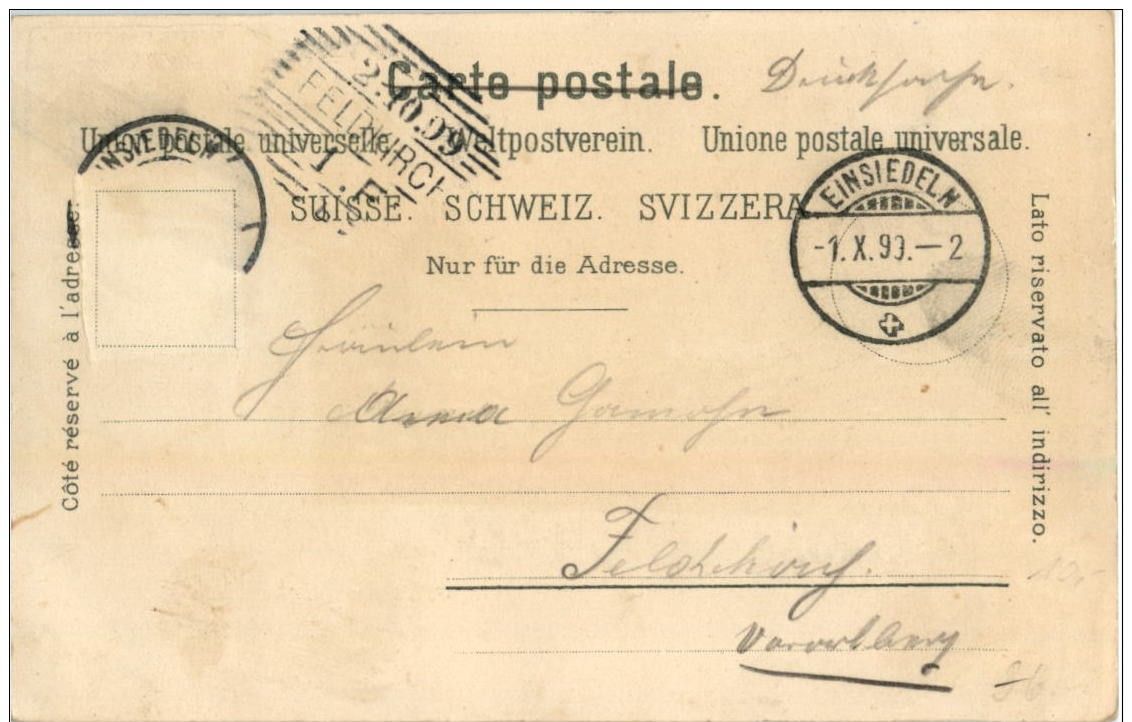 Carte postale. Drucksache.
Union postale universelle. Weltpostverein. Unione postale universale.
SUISSE. SCHWEIZ. SVIZZERA
Nur für die Adresse.
Côté réservé à l'adresse.
Lato riservato all' indirizzo.
EINSIEDELN
2.10.99
FELDKIRCH
1.F
EINSIEDELN
-1.X.99.-2
Fräulein
Anna
Feldkirch.
Vorarlberg
10,-